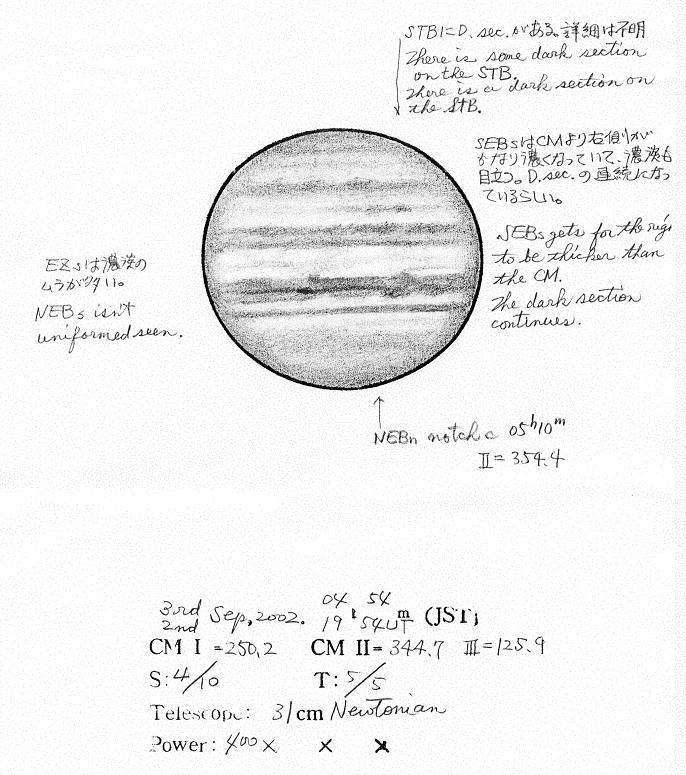 STBにD. sec. がある。詳細は不明
There is some dark section
on the STB.
There is a dark section on
the STB.
SEBsはCMより右側が
かなり濃くなっていて、濃淡も
目立つ。D. sec. の連続になっ
ているらしい。
SEBs gets for the righ
to be thicker than
the CM.
The dark section
continues.
EZsは濃淡の
ムラが多い。
NEBs isn't
uniformed seen.
NEBn notch c 05h10m
II = 354.4
04 54
3rd Sep, 2002. 19h 54m (JST)
2nd UT
CM I = 250.2 CM II = 344.7 III = 125.9
S: 4/10 T: 5/5
Telescope: 31cm Newtonian
Power: 400 × × ×